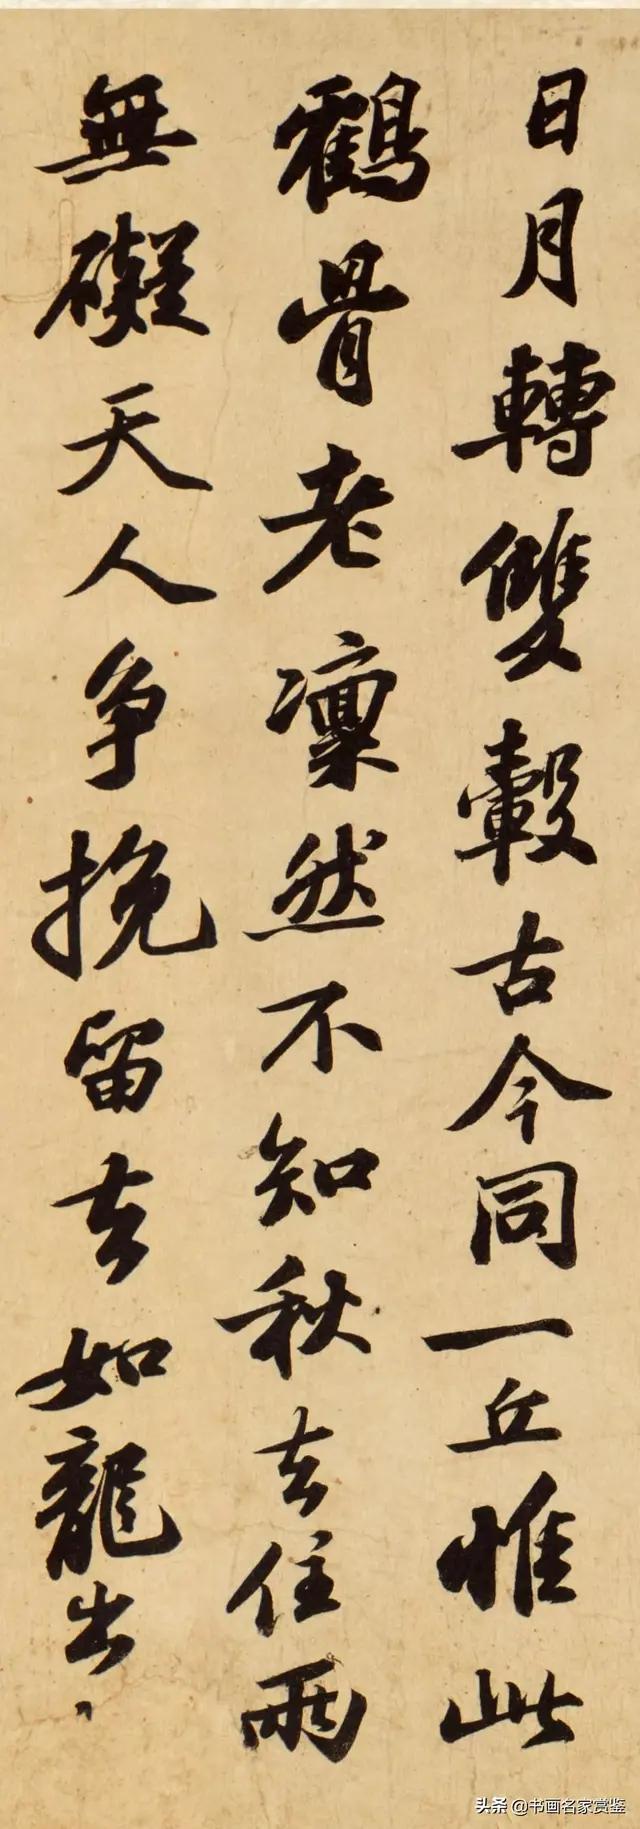 日月轉雙轂古今同一丘惟此
鶴骨老凜然不知秋去住兩
無礙天人争挽留去如龍出、
头条 @书画名家赏鉴